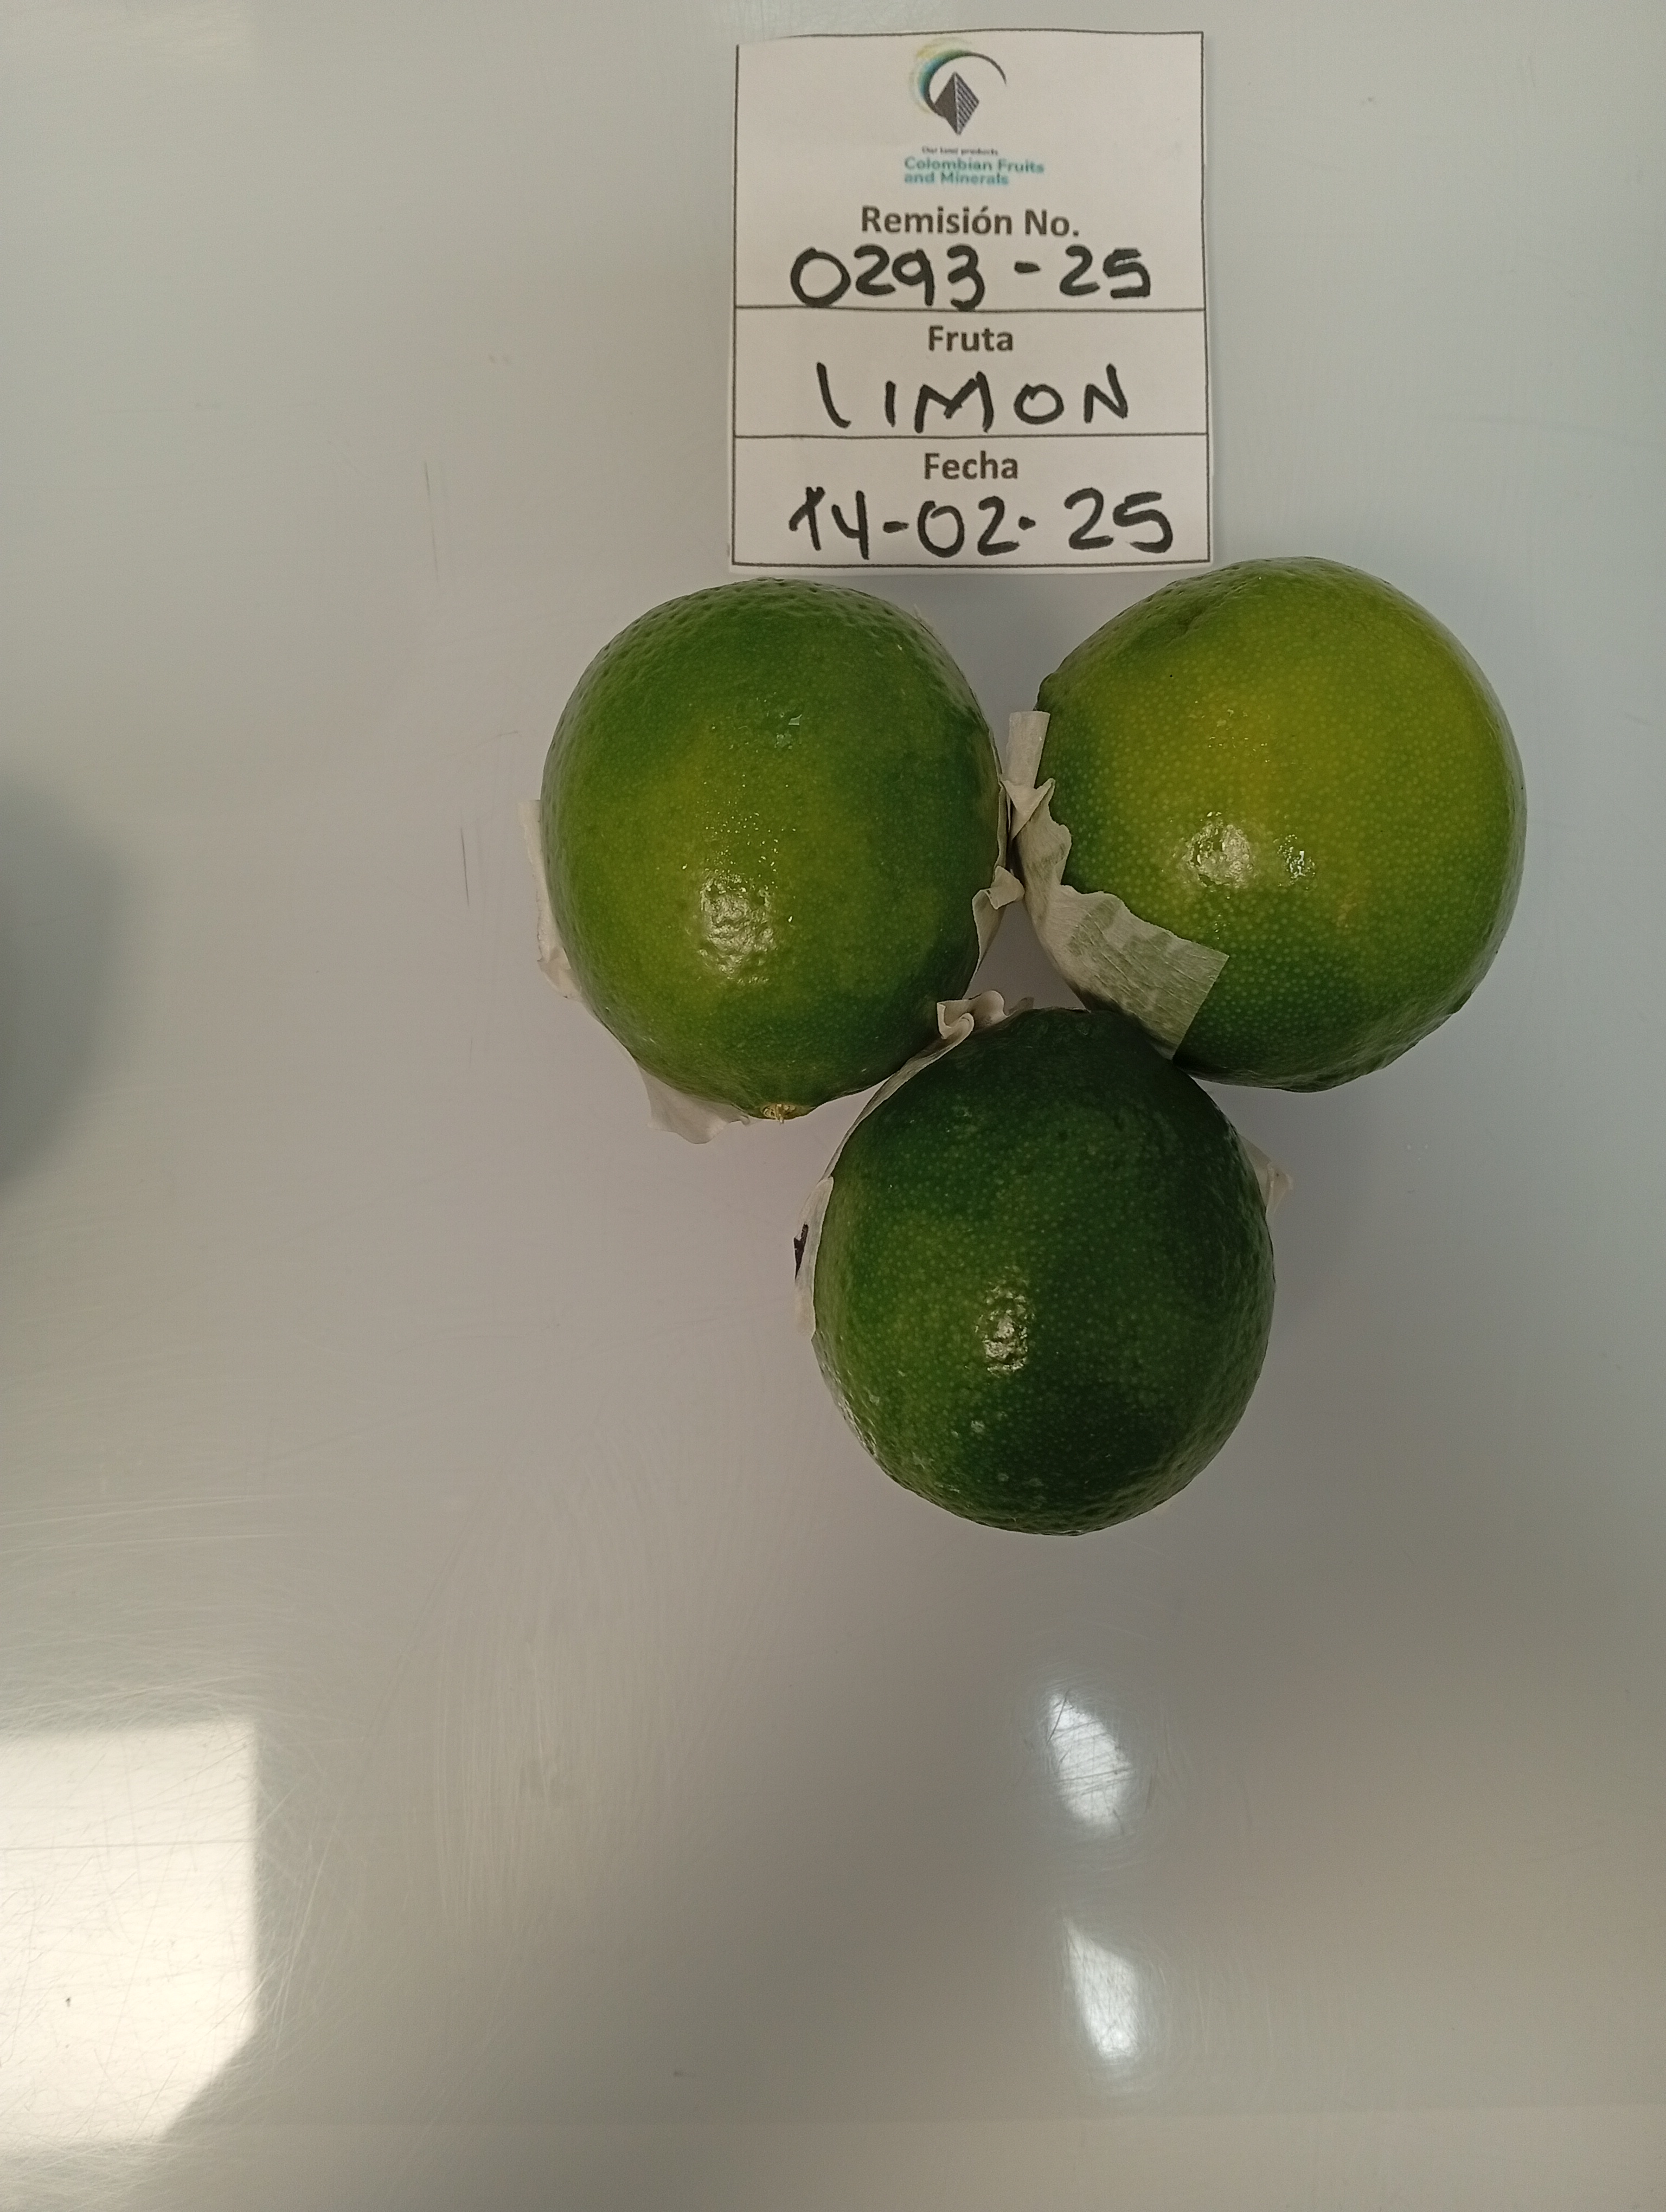 Our best products
Colombian Fruits
and Minerals
Remisión No.
0293-25
Fruta
LIMON
Fecha
14-02-25